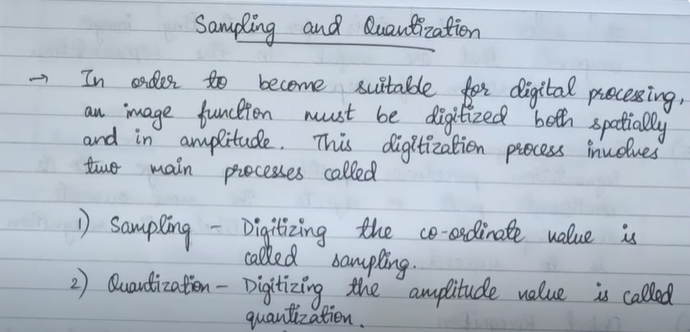 Sampling and Quantization
→ In order to become suitable for digital processing,
an image function must be digitized both spatially
and in amplitude. This digitization process involves
two main processes called
1) Sampling - Digitizing the co-ordinate value is
called sampling.
2) Quantization - Digitizing the amplitude value is called
quantization.